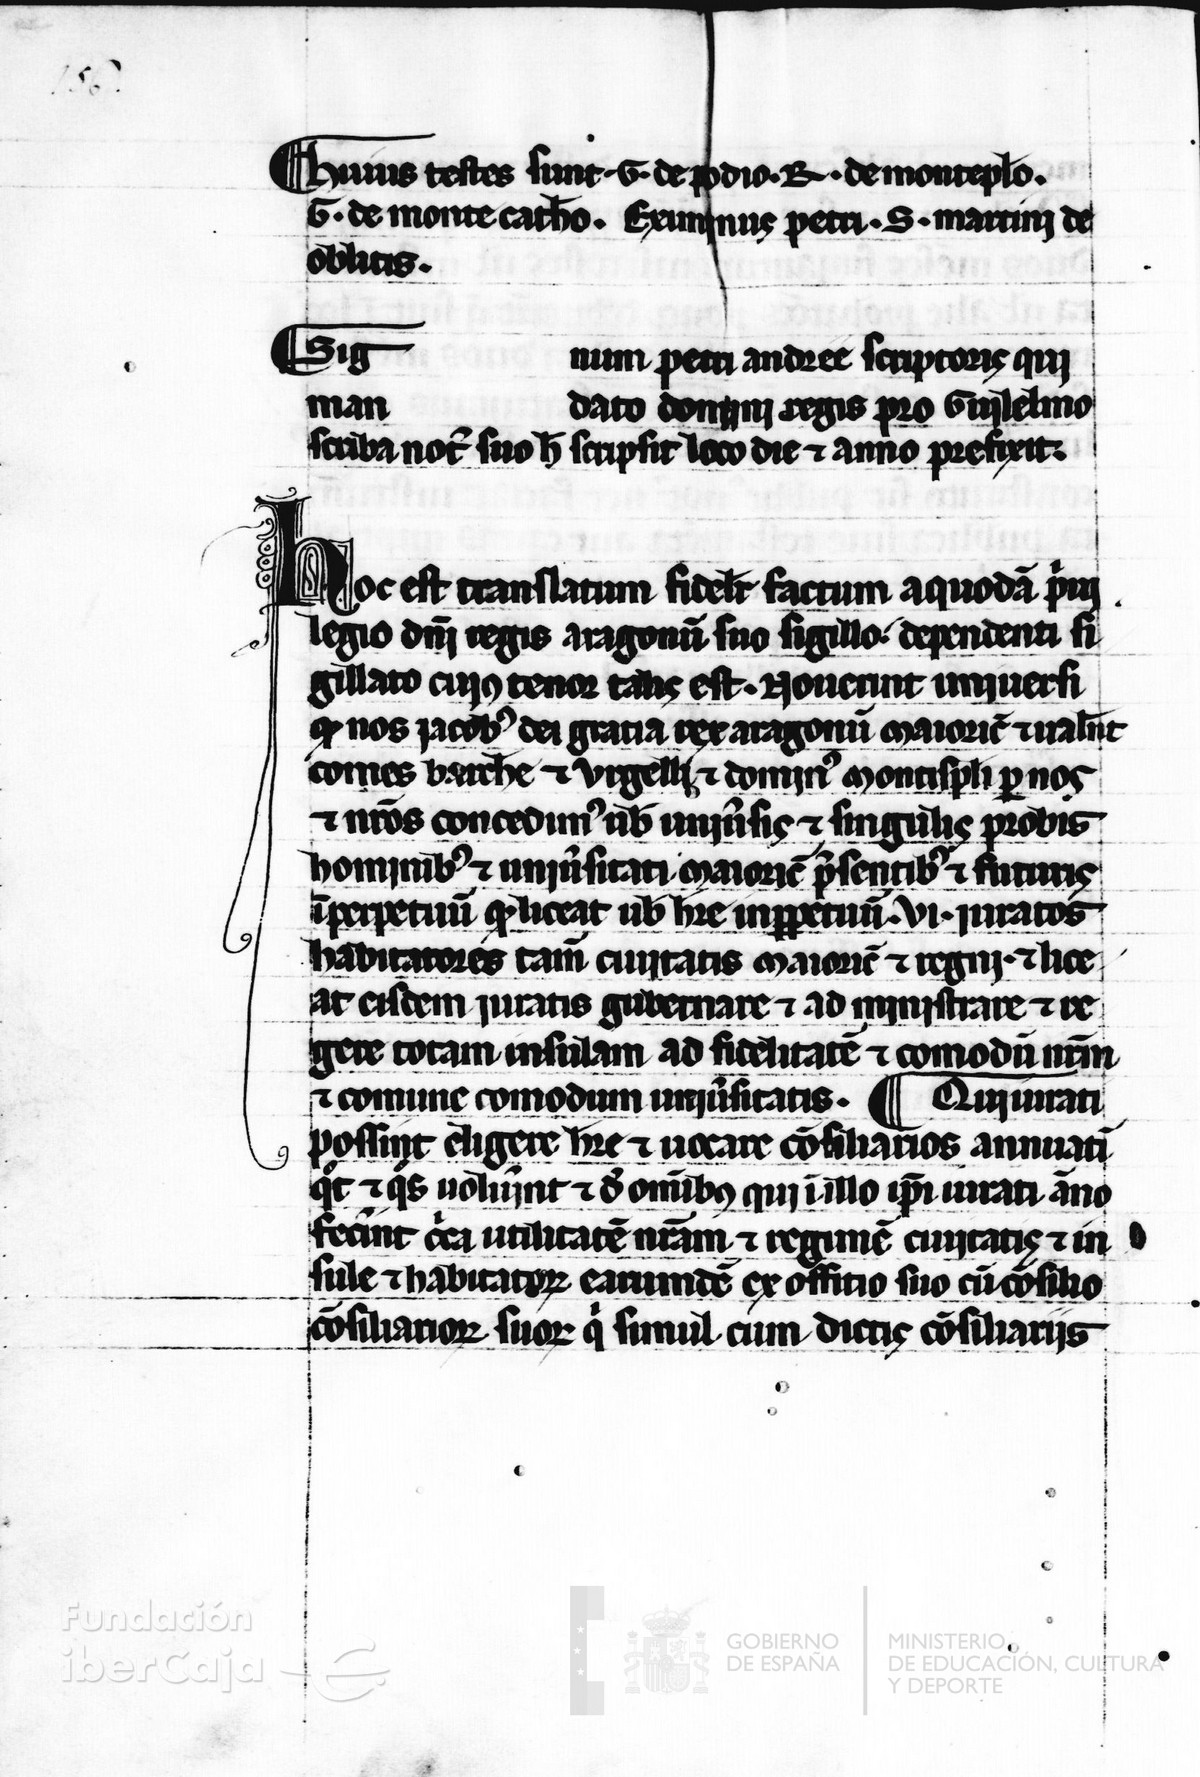 156
huius testes sunt. G. de podio. B. de montepl̄o.
G. de monte cath̄o. Eximinus petri. S. martini de
oblitis.
Sig num petri andree scriptoris qui
man dato domini regis pro Guilelmo
scriba not̄ suo h̄ scripsit loco die ⁊ anno prefixit.
Hoc est translatum fidelr̄ factum a quodā pͥui
legio dn̄i regis aragonū suo sigillo dependenti si
gillato cuiꝯ tenor talis est. Nouerint uniuersi
ꝙ nos iacobꝰ dei gratia rex aragonū maioric̄ ⁊ ualent̄
comes barch̄e ⁊ Vrgelli ⁊ dominꝰ montispl̄i ꝑ nos
⁊ nr̄os concedimꝰ uob̄ uniũsis ⁊ singulis probis
hominibꝰ ⁊ uniũsitati maioric̄ p̄sentibꝰ ⁊ futuris
īperpetuū ꝙ liceat uob̄ hr̄e inꝑpetuū. VI. iuratos
habitatores tam̄ ciuitatis maioric̄ ⁊ regni. ⁊ lice
at eisdem iuratis gubernare ⁊ ad ministrare ⁊ re
gere totam insulam ad fidelitatē ⁊ comodū nr̄m
⁊ comune comodum uniũsitatis. Qui iurati
possint eligere hr̄e ⁊ uocare cōsiliarios annuatī
qͦt ⁊ qͦs uoluĩnt ⁊ đ om̄ibꝯ qui ī illo ip̄i iurati āno
fecĩnt cͥca utilitatē nr̄am ⁊ regimē ciuitatis ⁊ in
sule ⁊ habitatoꝝ earumdē ex offitio suo cū cōsilio
cōsiliarioꝝ suoꝝ qͥ simul cum dictis cōsiliariis
Fundación
iberCaja
GOBIERNO
DE ESPAÑA
MINISTERIO
DE EDUCACIÓN, CULTURA
Y DEPORTE